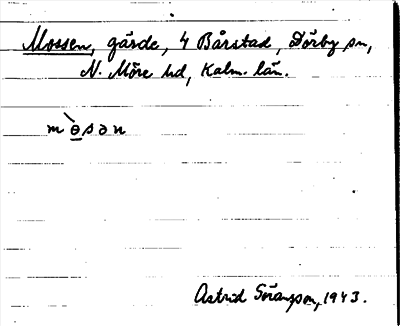 Mossen, gärde, 4 Bårstad, Dörby sn,
N. Möre hd, Kalm. län.
mɵ̠̀sən
Astrid Göransson, 1943.